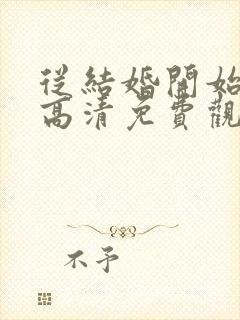 從結婚開始
高清免費觀
不予